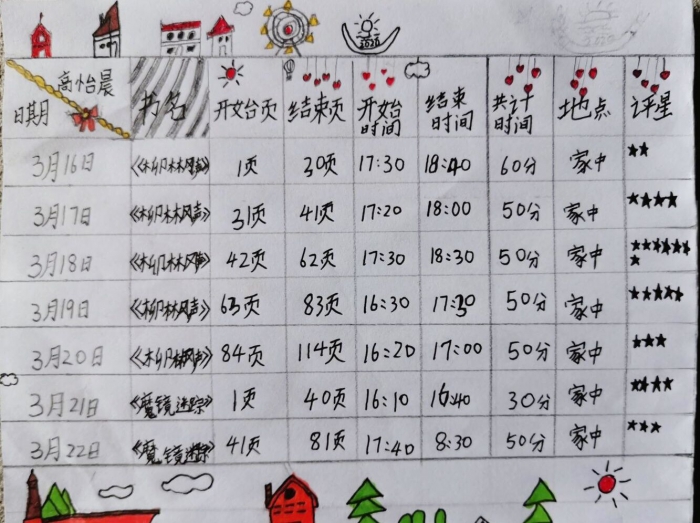 2020
高怡晨
日期 书名 开始页 结束页 开始时间 结束时间 共计时间 地点 评星
3月16日 《柳林风声》 1页 30页 17:30 18:40 60分 家中 ★★
3月17日 《柳林风声》 31页 41页 17:20 18:00 50分 家中 ★★★★
3月18日 《柳林风声》 42页 62页 17:30 18:30 50分 家中 ★★★★★★★
3月19日 《柳林风声》 63页 83页 16:30 17:30 50分 家中 ★★★★★
3月20日 《柳林风声》 84页 114页 16:20 17:00 50分 家中 ★★★
3月21日 《魔镜迷踪》 1页 40页 16:10 16:40 30分 家中 ★★★★
3月22日 《魔镜迷踪》 41页 81页 17:40 8:30 50分 家中 ★★★